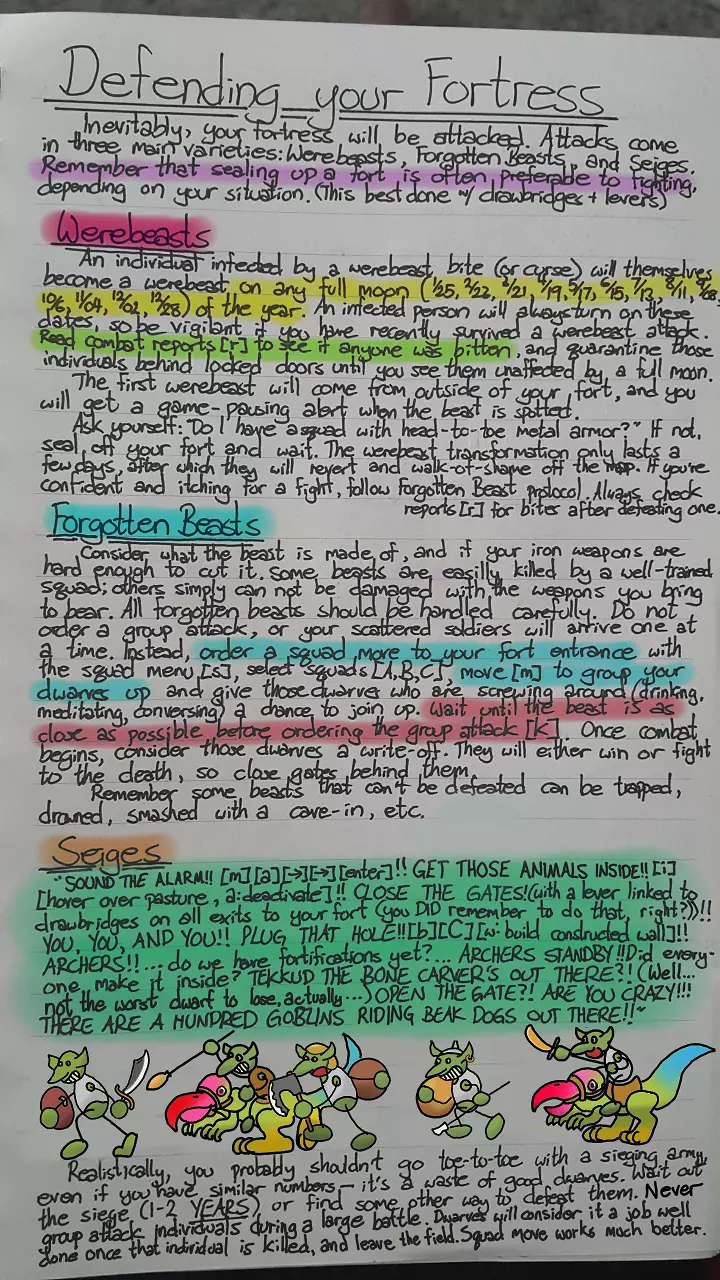 Defending your Fortress
Inevitably, your fortress will be attacked. Attacks come
in three main varieties: Werebeasts, Forgotten Beasts, and Seiges.
Remember that sealing up a fort is often preferable to fighting,
depending on your situation. (This best done w/ drawbridges + levers)
Werebeasts
An individual infected by a werebeast bite (or curse) will themselves
become a werebeast on any full moon (1/25, 2/22, 3/21, 4/19, 5/17, 6/15, 7/13, 8/11, 9/08,
10/6, 11/04, 12/02, 12/28) of the year. An infected person will always turn on these
dates, so be vigilant if you have recently survived a werebeast attack.
Read combat reports [r] to see if anyone was bitten, and quarantine those
individuals behind locked doors until you see them unaffected by a full moon.
The first werebeast will come from outside of your fort, and you
will get a game-pausing alert when the beast is spotted.
Ask yourself: "Do I have a squad with head-to-toe metal armor?" If not,
seal off your fort and wait. The werebeast transformation only lasts a
few days, after which they will revert and walk-of-shame off the map. If you're
confident and itching for a fight, follow Forgotten Beast protocol. Always check
reports [r] for bites after defeating one.
Forgotten Beasts
Consider what the beast is made of, and if your iron weapons are
hard enough to cut it. Some beasts are easilly killed by a well-trained
squad; others simply can not be damaged with the weapons you bring
to bear. All forgotten beasts should be handled carefully. Do not
order a group attack, or your scattered soldiers will arrive one at
a time. Instead, order a squad move to your fort entrance with
the squad menu [s], select squads [A,B,C], move [m] to group your
dwarves up and give those dwarves who are screwing around (drinking,
meditating, conversing) a chance to join up. Wait until the beast is as
close as possible before ordering the group attack [k]. Once combat
begins, consider those dwarves a write-off. They will either win or fight
to the death, so close gates behind them.
Remember some beasts that can't be defeated can be trapped,
drowned, smashed with a cave-in, etc.
Seiges
"SOUND THE ALARM!! [m][a][→][→][enter]!! GET THOSE ANIMALS INSIDE!! [i]
[hover over pasture, a: deactivate]!! CLOSE THE GATES! (with a lever linked to
drawbridges on all exits to your fort (you DID remember to do that, right?))!!
YOU, YOU, AND YOU!! PLUG THAT HOLE!! [b][C][w: build constructed wall]!!
ARCHERS!!... do we have fortifications yet?... ARCHERS STANDBY!! Did every-
one make it inside? TEKKUD THE BONE CARVER'S OUT THERE?! (Well...
not the worst dwarf to lose, actually...) OPEN THE GATE?! ARE YOU CRAZY!!!
THERE ARE A HUNDRED GOBLINS RIDING BEAK DOGS OUT THERE!!"
Realistically, you probably shouldn't go toe-to-toe with a sieging army,
even if you have similar numbers - it's a waste of good dwarves. Wait out
the siege (1-2 YEARS), or find some other way to defeat them. Never
group attack individuals during a large battle. Dwarves will consider it a job well
done once that individual is killed, and leave the field. Squad move works much better.